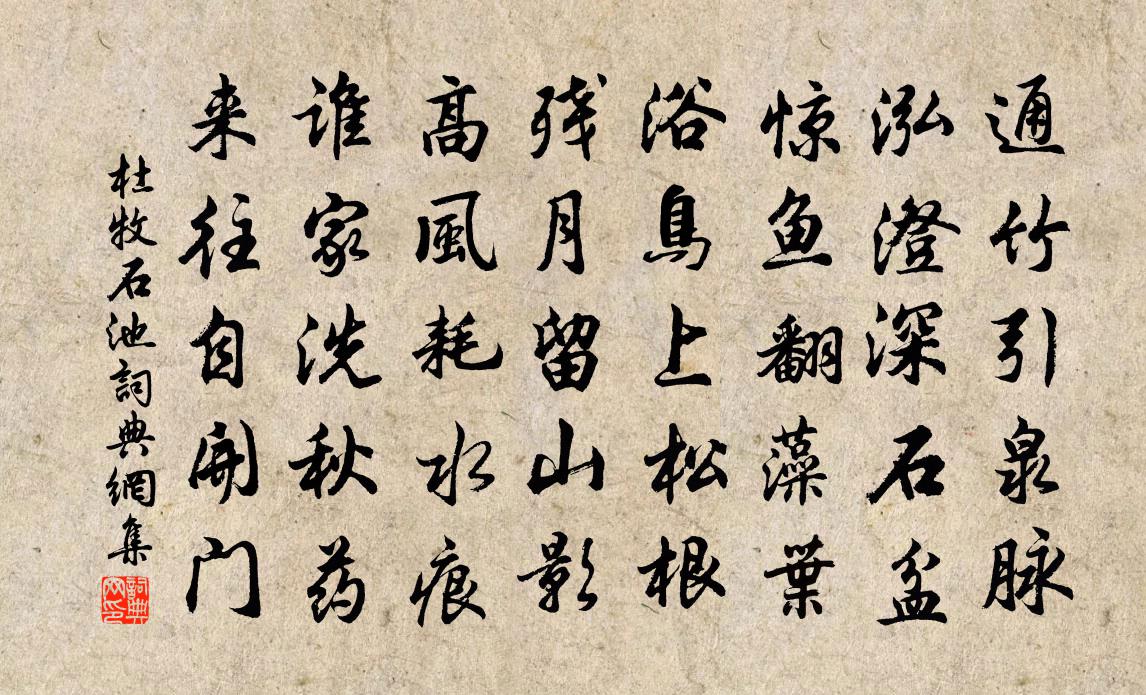 通竹引泉脉
泓澄深石盆
惊鱼翻藻葉
浴鳥上松根
残月留山影
高風耗水痕
谁家洗秋药
来往自開门
杜牧石池詞典網集
詞典網印